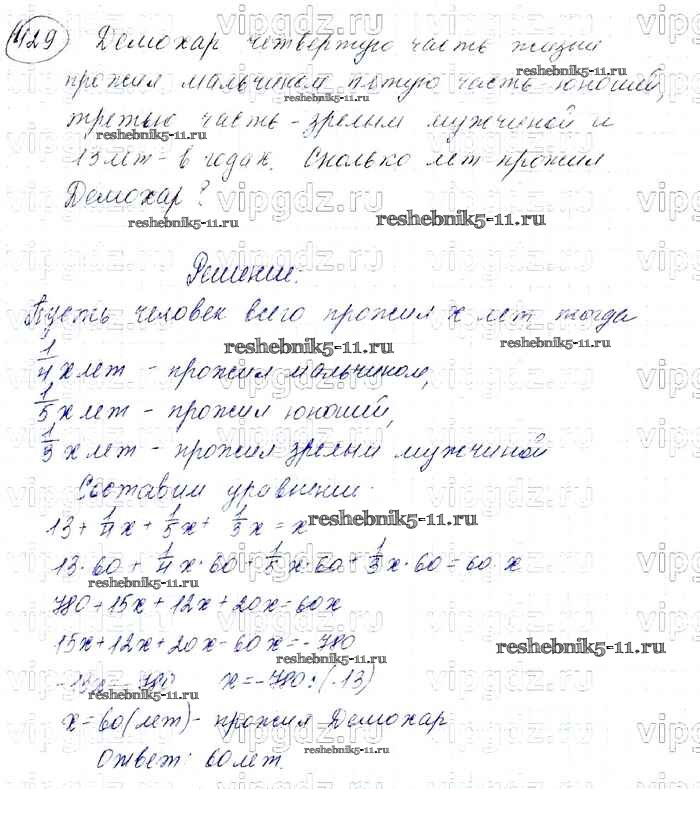 1129 Демохар четвертую часть жизни
прожил мальчиком, пятую часть - юношей,
третью часть - зрелым мужчиной и
13 лет - в годах. Сколько лет прожил
Демохар?
Решение:
Пусть человек всего прожил x лет тогда
1/4 x лет - прожил мальчиком,
1/5 x лет - прожил юношей,
1/3 x лет - прожил зрелым мужчиной
Составим уравнение.
13 + 1/4 x + 1/5 x + 1/3 x = x
13·60 + 1/4 x·60 + 1/5 x·60 + 1/3 x·60 = 60 x
780 + 15x + 12x + 20x = 60x
15x + 12x + 20x - 60x = -780
-13x = -780 x = -780 : (-13)
x = 60 (лет) - прожил Демохар
Ответ: 60 лет.
vipgdz.ru
reshebnik5-11.ru